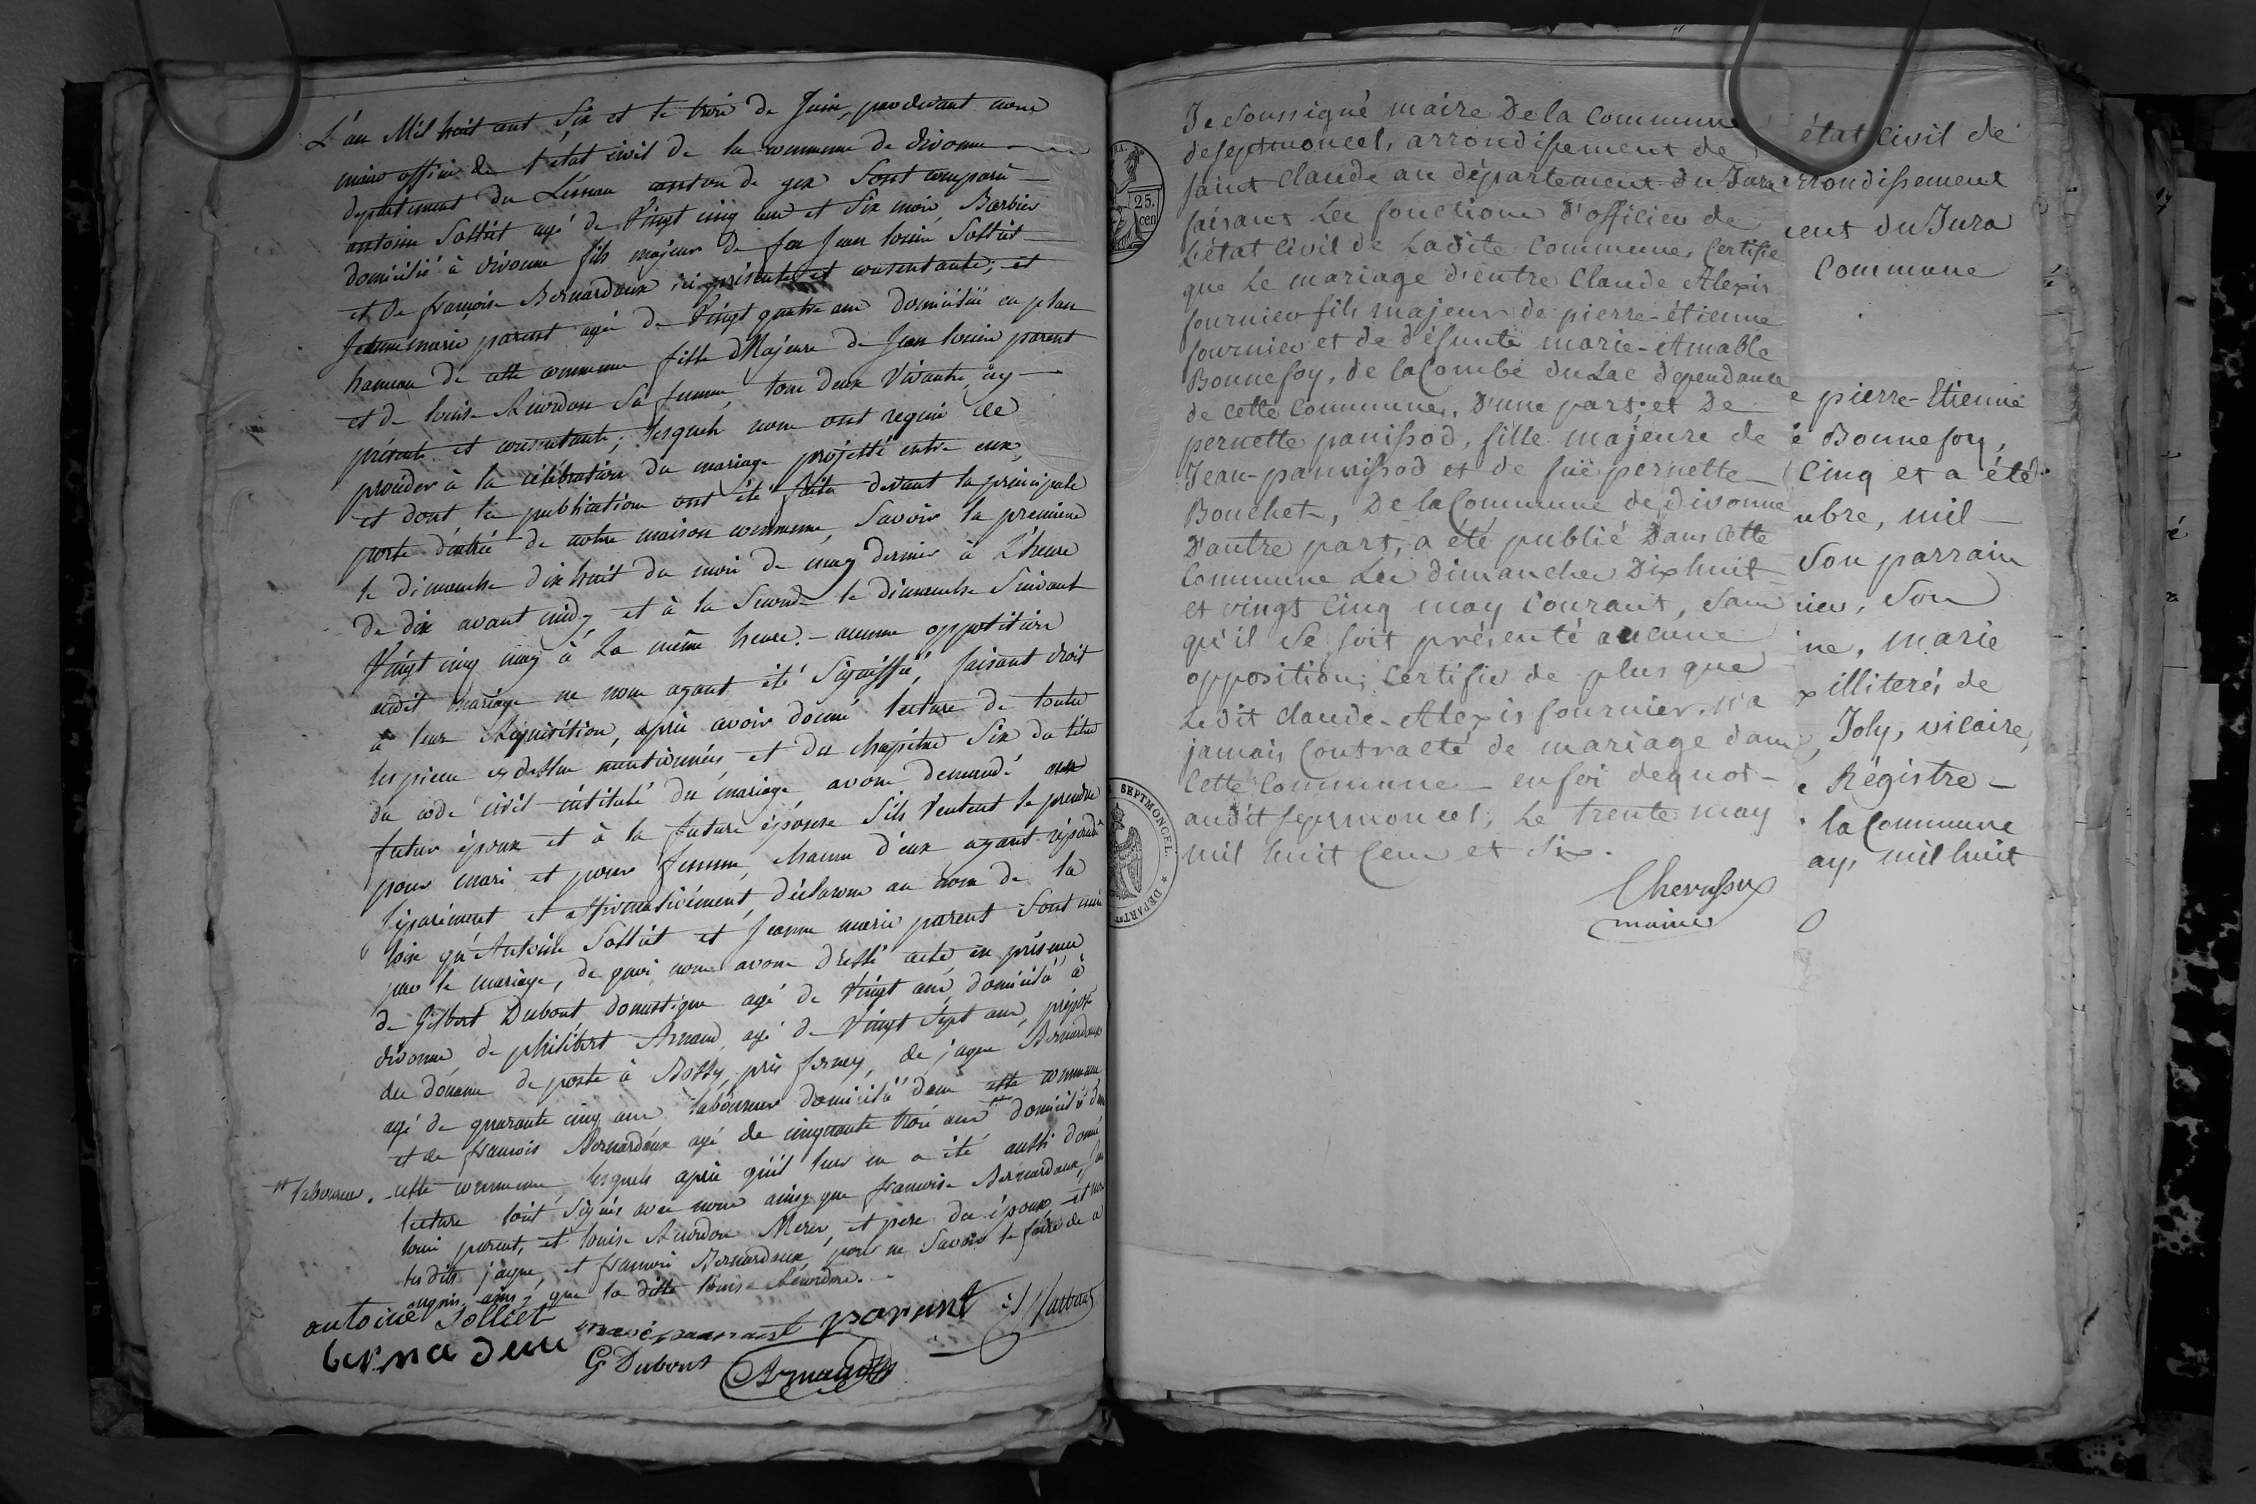 L'an Mil huit cent Six et le trois de Juin, pardevant nous
maire officier de l'état civil de la commune de divonne
département du Léman canton de gex Sont comparu
antoine Solliet agé de Vingt cinq ans et Six mois, Barbier
domicilié à divonne fils majeur de feu Jean louis Solliet
et De françoise Bernardeaux ici présente et consentante; et
Jeannemarie parent agée de Vingt quatre ans domiciliée en plan
hameau de cette commune fille Majeure de Jean louis parent
et de louise Réverdon Sa femme, tous deux Vivants, icy
présents et consentants; lesquels nous ont requis de
procéder à la célébration du mariage projetté entre eux,
et dont les publications ont été faites devant la principale
porte d'entrée de notre maison commune, Savoir la premiere
le dimanche dix huit du mois de may dernier à l'heure
de dix avant midy et à la Seconde le dimanche Suivant
Vingt cinq may à La même heure. aucune opposition
audit mariage ne nous ayant été Signiffié, faisant droit
à leur Réquisition, après avoir donné lecture de toutes
les pieces cydessus mentionnées et du chapitre Six du titre
du code civil intitulé du mariage avons demandé aux
futur époux et à la future épouse S'ils Veulent se prendre
pour mari et pour femme, chacun d'eux ayant répondu
Séparément et affirmativement, déclarons au nom de la
loix qu'Antoine Solliet et Jeanne marie parent Sont unis
par le mariage, de quoi nous avons dressé acte en présence
de Gilbert Dubout domestique agé de Vingt ans domicilié à
divonne de philibert Arnaud, agé de Vingt Sept ans, préposé
des douanes de poste à Bossy près ferney, de jaque Bernardeaux
agé de quarante cinq ans laboureur domicilié dans cette commune
et de françois Bernardeaux agé de cinquante trois ans domicilié dans
laboureur. cette commune lesquels après qu'il leur en a été aussi donné
lecture sont Signés avec nous ainsy que françoise Bernardeaux, Jean
louis parent, et louise Réverdon Meres, et pere des époux, et non
les dits jaque, et françois Bernardeaux pour ne Savoir le faire de ce
requis, ainsy que la ditte louise Réverdon.
antoine Solliet
marie parant parant
bernadeau
G Dubout Arnaud
Je soussigné maire De la Commune
de septmoncel, arrondissement de
saint Claude au département du Jura
faisant Les fonctions D'officier de
L'état Civil de Ladite Commune, Certifie
que Le mariage d'entre Claude Alexis
fournier fils majeur de pierre-étienne
fournier et de défunte marie-Aimable
Bonnefoy, de la Combe du Lac dependance
de cette Commune, D'une part; et De
pernette panissod, fille majeure de
Jean-pannissod et de fuë pernette
Bouchet, De la Commune de Divonne
D'autre part, a été publié Dans Cette
Commune Les dimanches Dix huit
et vingt Cinq may Courant, sans
qu'il se soit présenté aucune
opposition; Certifie de plus que
Ledit Claude-Alexis fournier n'a
jamais Contracté de mariage dans
Cette Commune en foi de quoi
audit septmoncel, Le trente may
mil huit Cens et Six.
Chevassux
maire
état Civil de
arrondissement
ent du Jura
Commune
pierre-Etienne
Bonnefoy,
Cinq et a été
mbre, mil
Son parrain
nier, Son
ne, marie
illiterés de
Joly, vicaire,
Régistre
la Commune
ay, mil huit
25.
cen
SEPTMONCEL.
DÉPART.